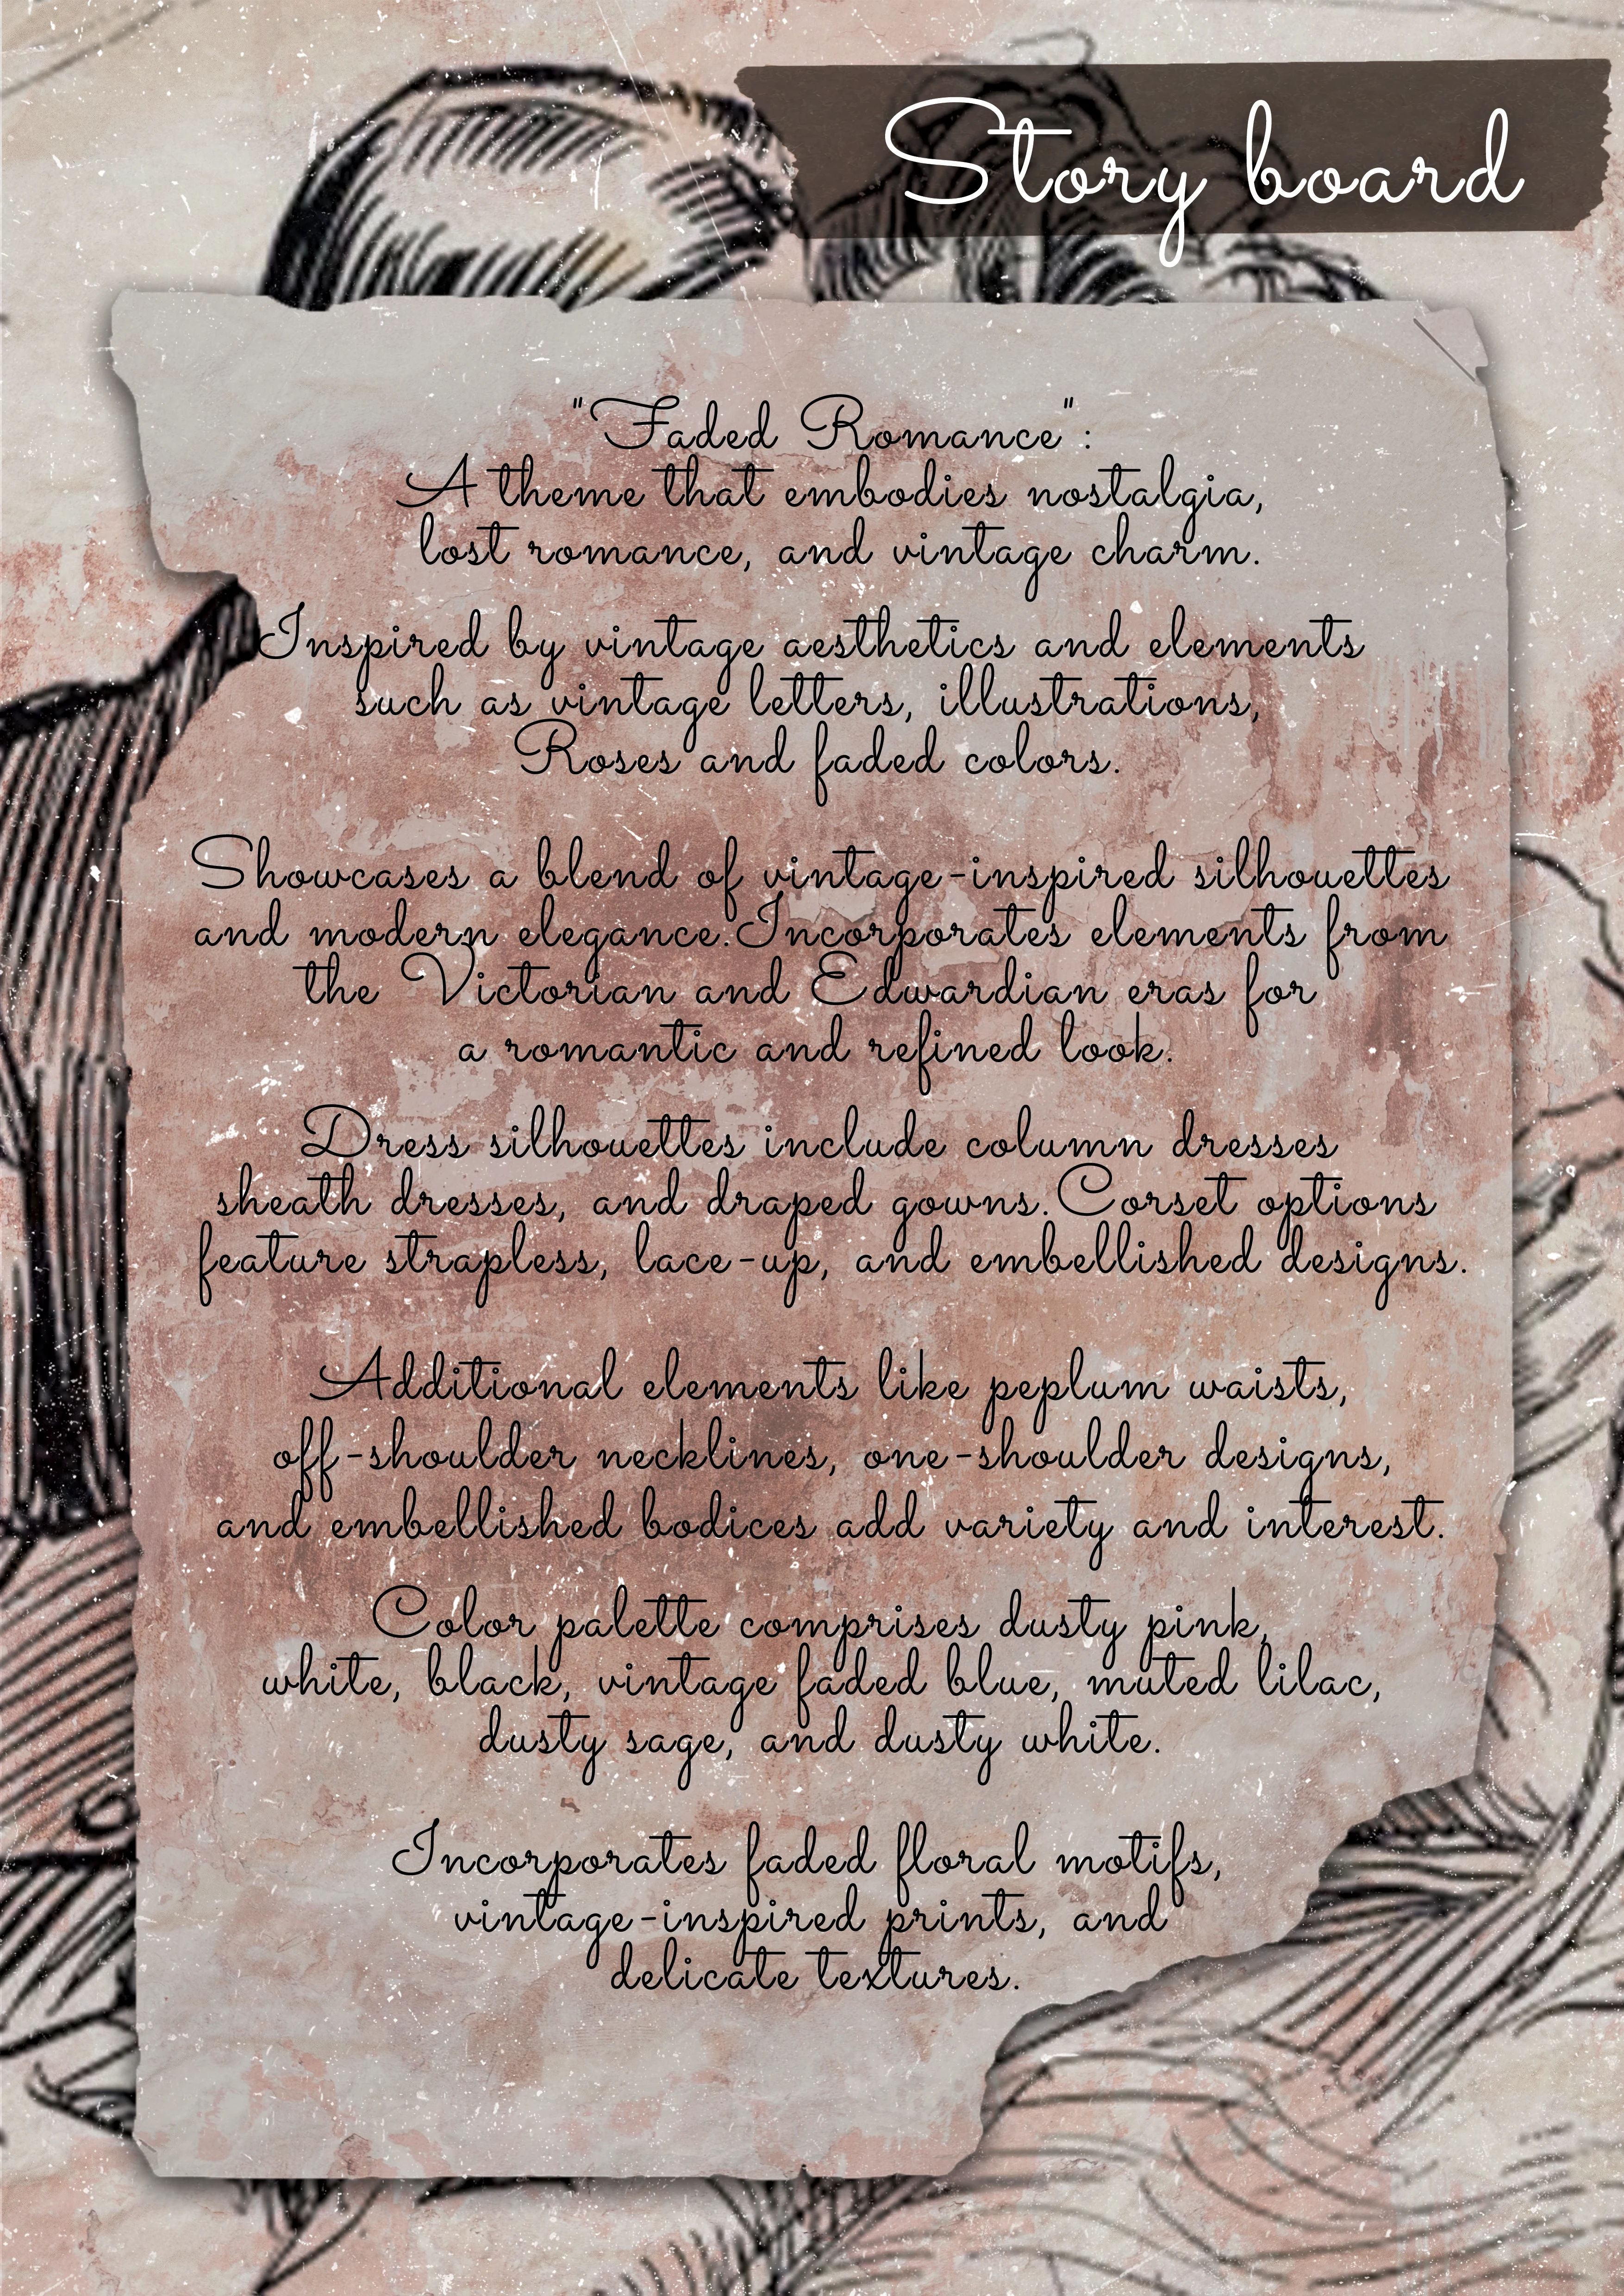 Story board
"Faded Romance":
A theme that embodies nostalgia,
lost romance, and vintage charm.
Inspired by vintage aesthetics and elements
such as vintage letters, illustrations,
Roses and faded colors.
Showcases a blend of vintage-inspired silhouettes
and modern elegance.Incorporates elements from
the Victorian and Edwardian eras for
a romantic and refined look.
Dress silhouettes include column dresses
sheath dresses, and draped gowns.Corset options
feature strapless, lace-up, and embellished designs.
Additional elements like peplum waists,
off-shoulder necklines, one-shoulder designs,
and embellished bodices add variety and interest.
Color palette comprises dusty pink,
white, black, vintage faded blue, muted lilac,
dusty sage, and dusty white.
Incorporates faded floral motifs,
vintage-inspired prints, and
delicate textures.